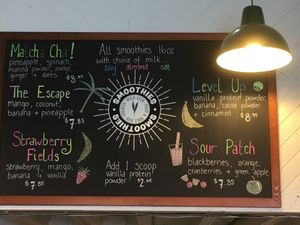 Matcha Cha!
pineapple, spinach,
matcha powder, orange,
ginger + dates
$8.95
The Escape
mango, coconut,
banana + pineapple
$7.85
Strawberry
Fields
strawberry, mango,
banana + vanilla
$7.85
All smoothies 16oz
with choice of milk...
soy almond oat
SMOOTHIES
SMOOTHIES
Add 1 scoop
vanilla protein
powder $2.
Level Up
vanilla protein powder,
banana, powder,
+ cinnamon
$8.95
Sour Patch
blackberries, orange,
cranberries + green apple
$7.85